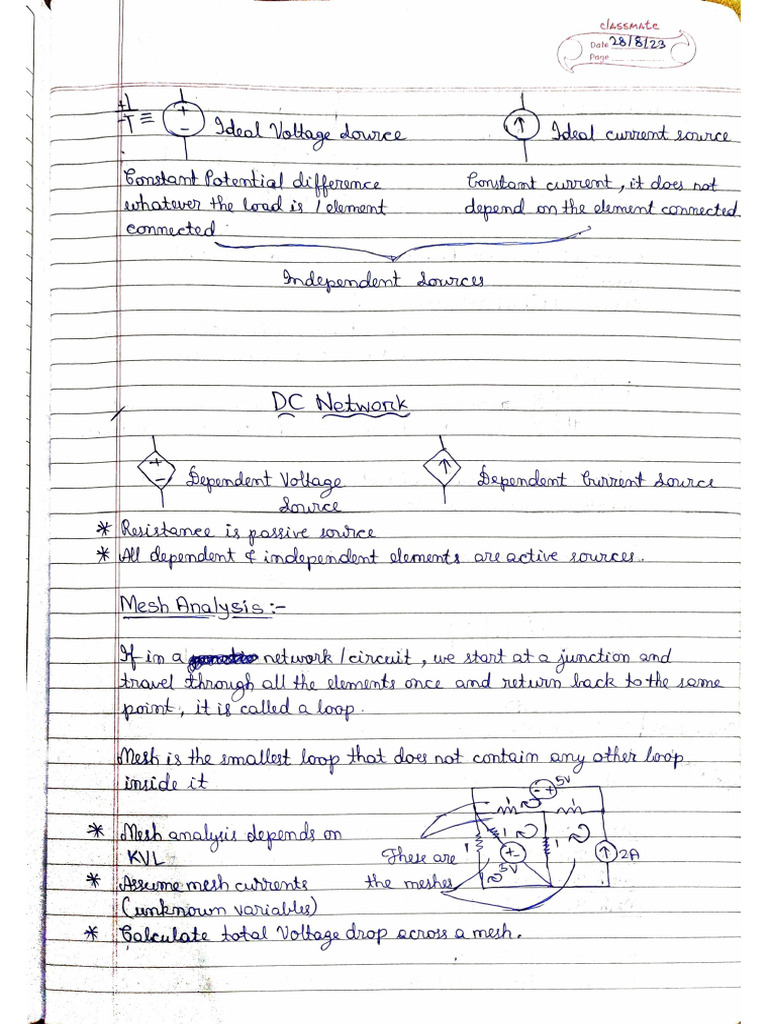 classmate
Date 28/8/23
Page
+ - ≡ + - Ideal Voltage Source
Ideal current source
Constant Potential difference
whatever the load is / element
connected.
Constant current, it does not
depend on the element connected.
Independent Sources
DC Network
+ - Dependent Voltage
Source
Dependent Current Source
* Resistance is passive source
* All dependent & independent elements are active sources.
Mesh Analysis :-
If in a network/circuit, we start at a junction and
travel through all the elements once and return back to the same
point, it is called a loop.
Mesh is the smallest loop that does not contain any other loop
inside it
- + 5V
1
1
1
1
+ -
5V
2A
* Mesh analysis depends on
KVL
These are
the meshes
* Assume mesh currents
(unknown variables)
* Calculate total Voltage drop across a mesh.